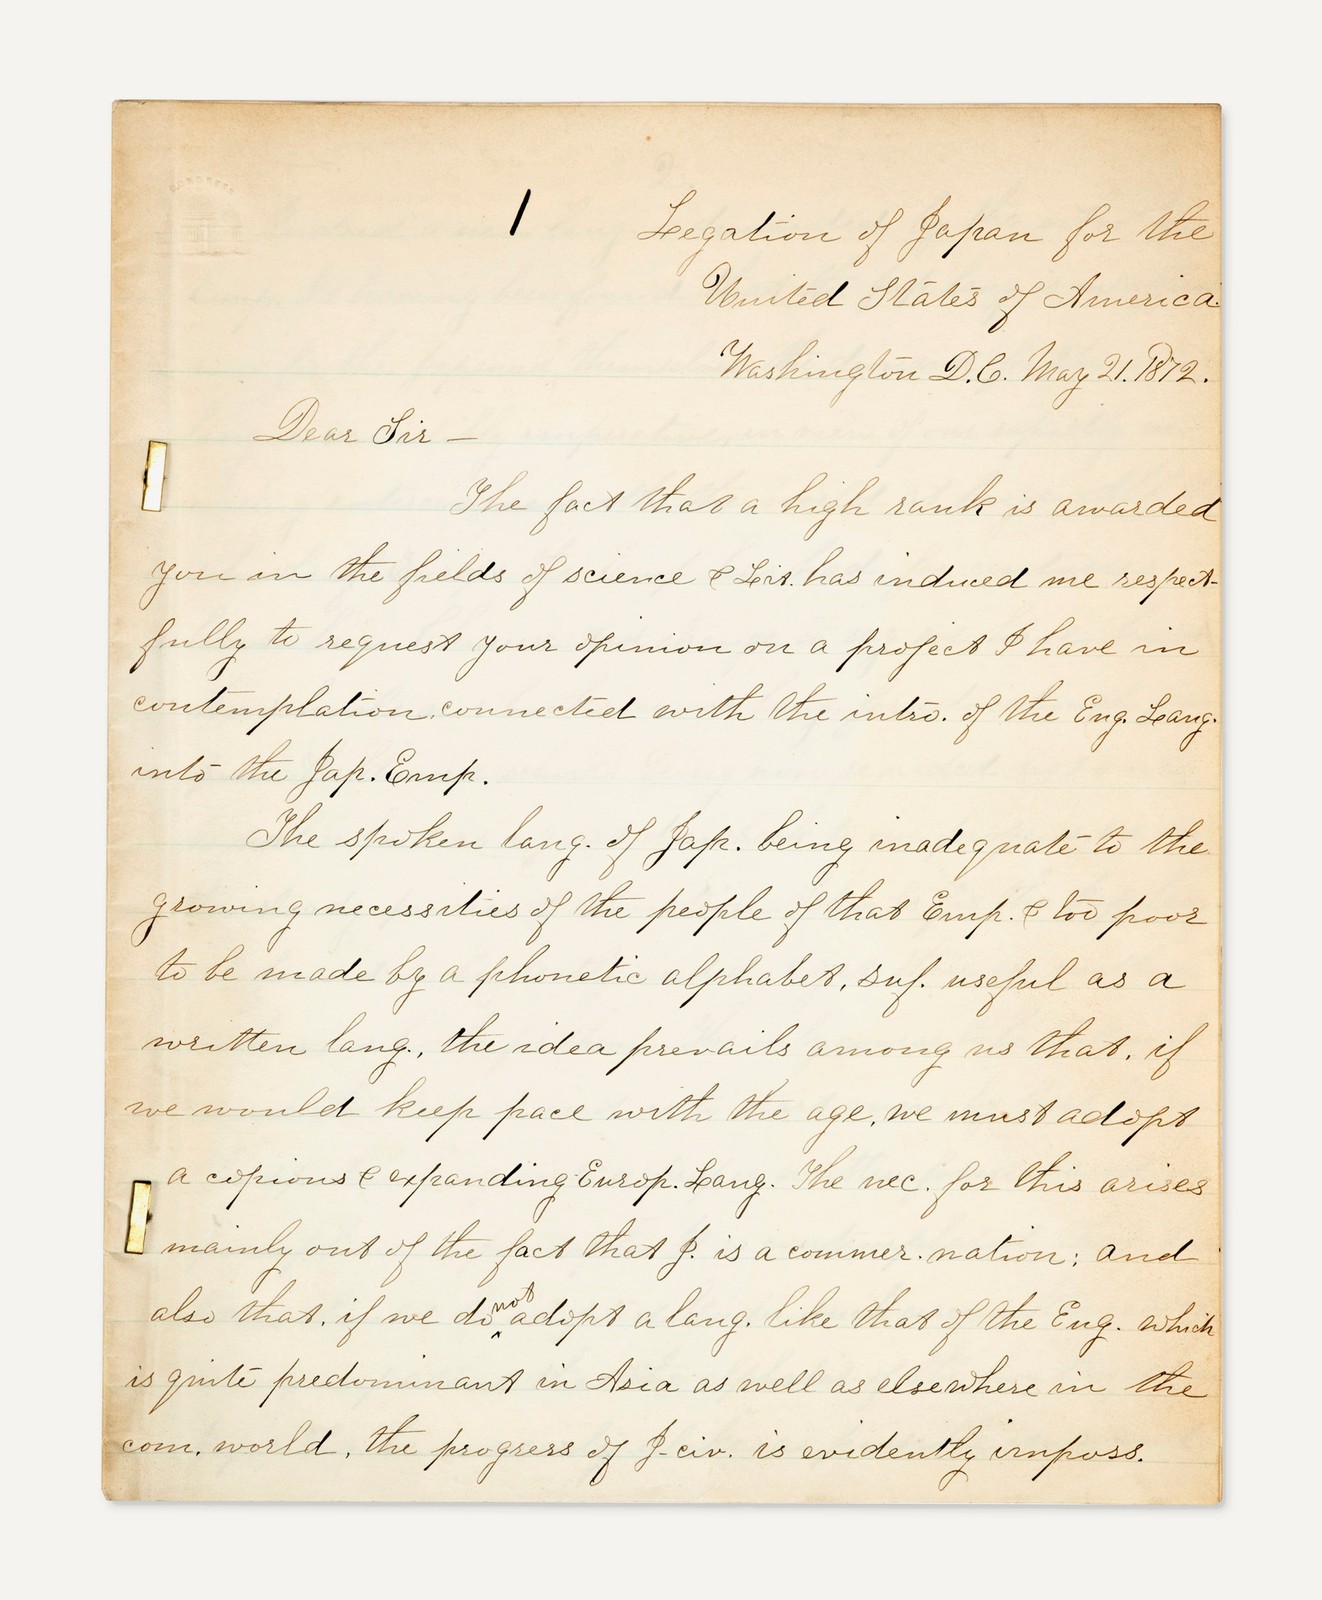 1
Legation of Japan for the
United States of America.
Washington D.C. May 21. 1872.
Dear Sir —
The fact that a high rank is awarded
you in the fields of science & Lit. has induced me respect-
fully to request your opinion on a project I have in
contemplation, connected with the intro. of the Eng. Lang.
into the Jap. Emp.
The spoken lang. of Jap. being inadequate to the
growing necessities of the people of that Emp. & too poor
to be made by a phonetic alphabet, suf. useful as a
written lang., the idea prevails among us that, if
we would keep pace with the age, we must adopt
a copious & expanding Europ. Lang. The nec. for this arises
mainly out of the fact that J. is a commer. nation; and
also that, if we do not adopt a lang. like that of the Eng. which
is quite predominant in Asia as well as elsewhere in the
com. world, the progress of J- civ. is evidently imposs.